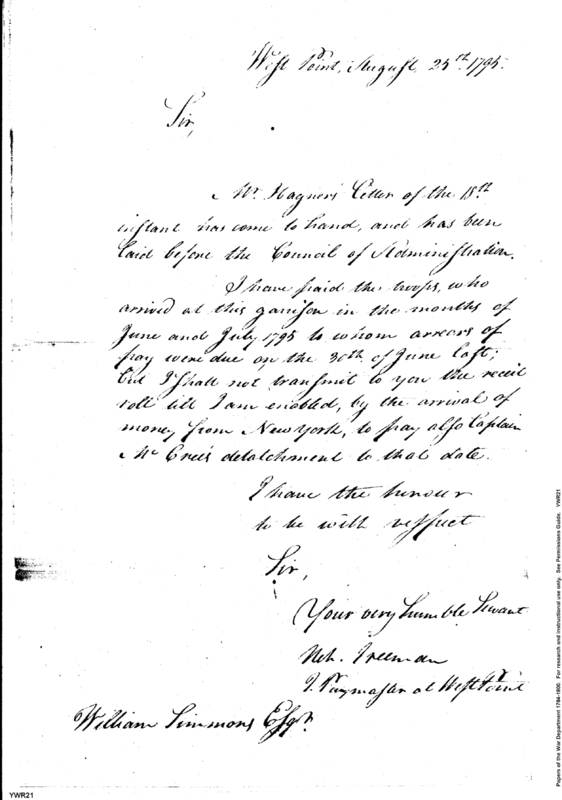 West Point, August, 25th. 1795.
Sir,
Mr. Hagner's Letter of the 18th
instant has come to hand, and has been
laid before the Council of Administration.
I have paid the troops, who
arrived at this garrison in the months of
June and July 1795 to whom arrears of
pay were due on the 30th of June last;
but I shall not transmit to you the receit
roll till I am enabled, by the arrival of
money from New York, to pay also Captain
Mc Cree's detatchment to that date.
I have the honour
to be with respect
Sir,
Your very humble Servant
Neh. Freeman
Paymaster at West Point
William Simmons Esqr.
YWR21
Papers of the War Department 1784-1800. For research and instructional use only. See Permissions Guide. YWR21